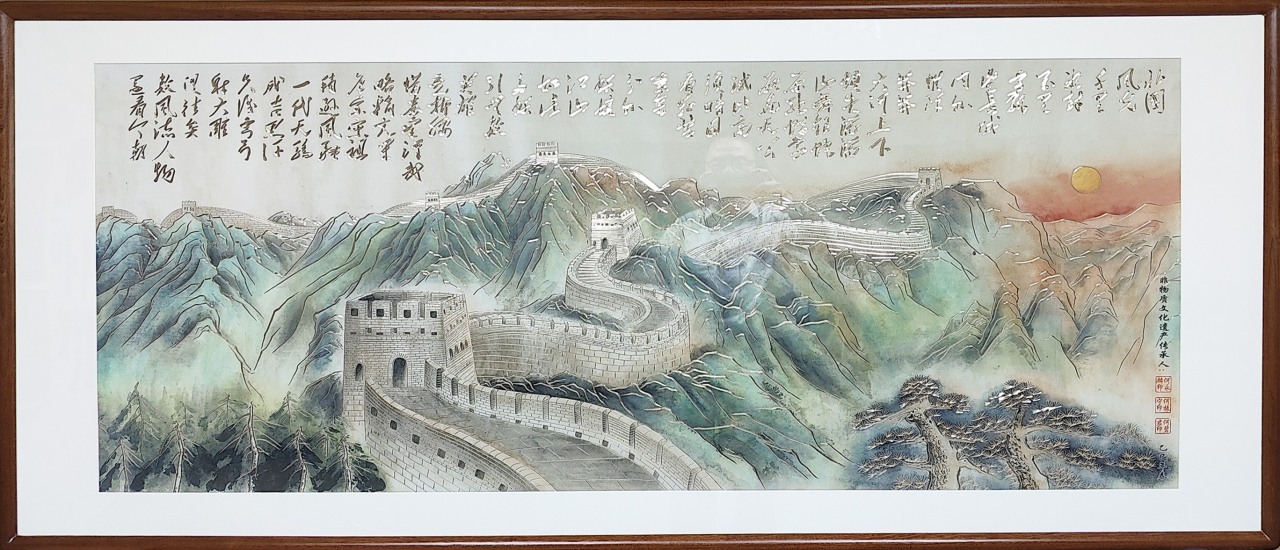 北国
风光
千里
冰封
万里
雪飘
望长城
内外
惟馀
莽莽
大河上下
顿失滔滔
山舞银蛇
原驰蜡象
欲与天公
试比高
须晴日
看红装
素裹
分外
妖娆
江山
如此
多娇
引无数
英雄
竞折腰
惜秦皇汉武
略输文采
唐宗宋祖
稍逊风骚
一代天骄
成吉思汗
只识弯弓
射大雕
俱往矣
数风流人物
还看今朝
非物质文化遗产传承人: